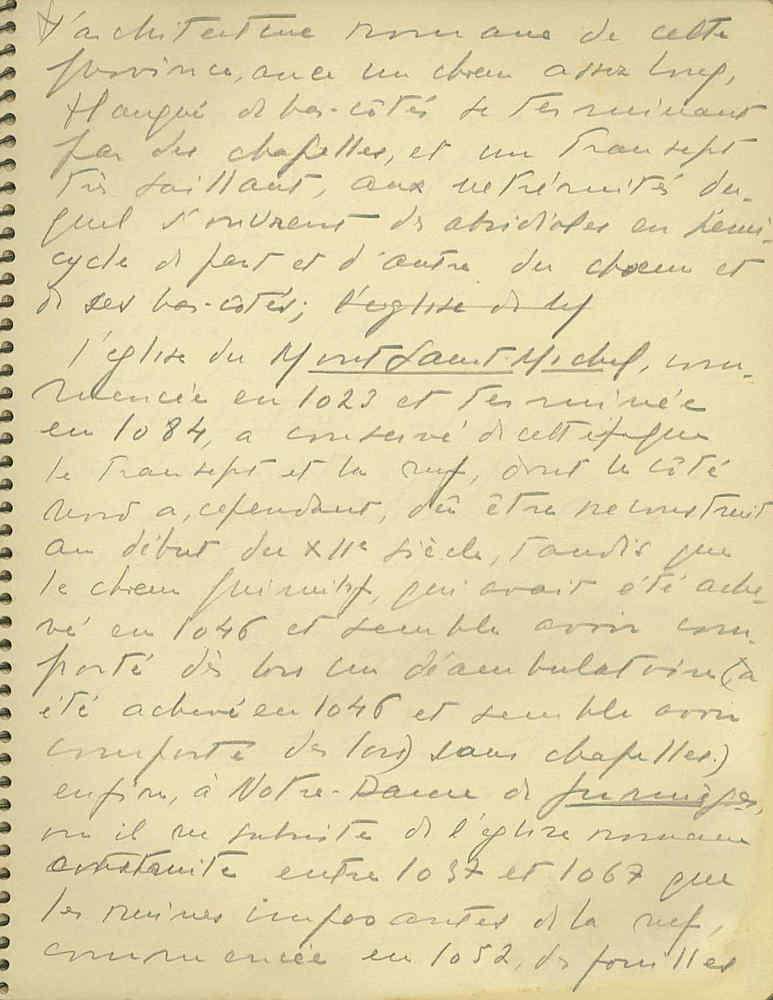 l'architecture romane de cette
province, avec un chœur assez long,
flanqué de bas-côtés se terminant
par des chapelles, et un transept
très saillant, aux extrémités du-
quel s'ouvrent des absidioles en hémi-
cycle de part et d'autre du chœur et
de ses bas-côtés; l'église de
l'église du Mont Saint-Michel, com-
mencée en 1023 et terminée
en 1084, a conservé de cette époque
le transept et la nef, dont le côté
nord a, cependant, dû être reconstruit
au début du XIIe siècle, tandis que
le chœur primitif, qui avait été ache-
vé en 1046 et semble avoir com-
porté dès lors un déambulatoire (a
été achevé en 1046 et semble avoir
comporté dès lors) sans chapelles;)
enfin, à Notre-Dame de Jumièges,
où il ne subsiste de l'église romane
construite entre 1037 et 1067 que
les ruines imposantes de la nef,
commencée en 1052, des fouilles